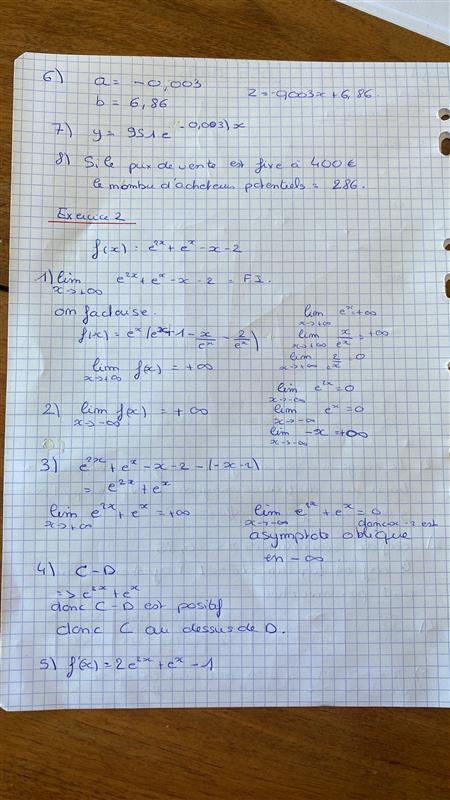 6) a = -0,003
b = 6,86
Z = -0,003x + 6,86
7) y = 951 e^(-0,003)x
8) Si le prix de vente est fixé à 400€
le nombu d'acheteurs potentiels = 286.
Exercice 2
f(x) = e^2x + e^x - x - 2
1) lim x→+∞ e^2x + e^x - x - 2 = FI.
on factorise.
f(x) = e^x (e^x + 1 - x/e^x - 2/e^x)
lim x→+∞ f(x) = +∞
lim x→+∞ e^x = +∞
lim x→+∞ x/e^x = +∞
lim x→+∞ 2/e^x = 0
2) lim x→-∞ f(x) = +∞
lim x→-∞ e^2x = 0
lim x→-∞ e^x = 0
lim x→-∞ -x = +∞
3) e^2x + e^x - x - 2 - (-x - 2)
= e^2x + e^x
lim x→+∞ e^2x + e^x = +∞
lim x→-∞ e^2x + e^x = 0
donc x - 2 est
asymptote oblique
en -∞
4) C - D
=> e^2x + e^x
donc C - D est positif
donc C au dessus de D.
5) f'(x) = 2e^2x + e^x - 1